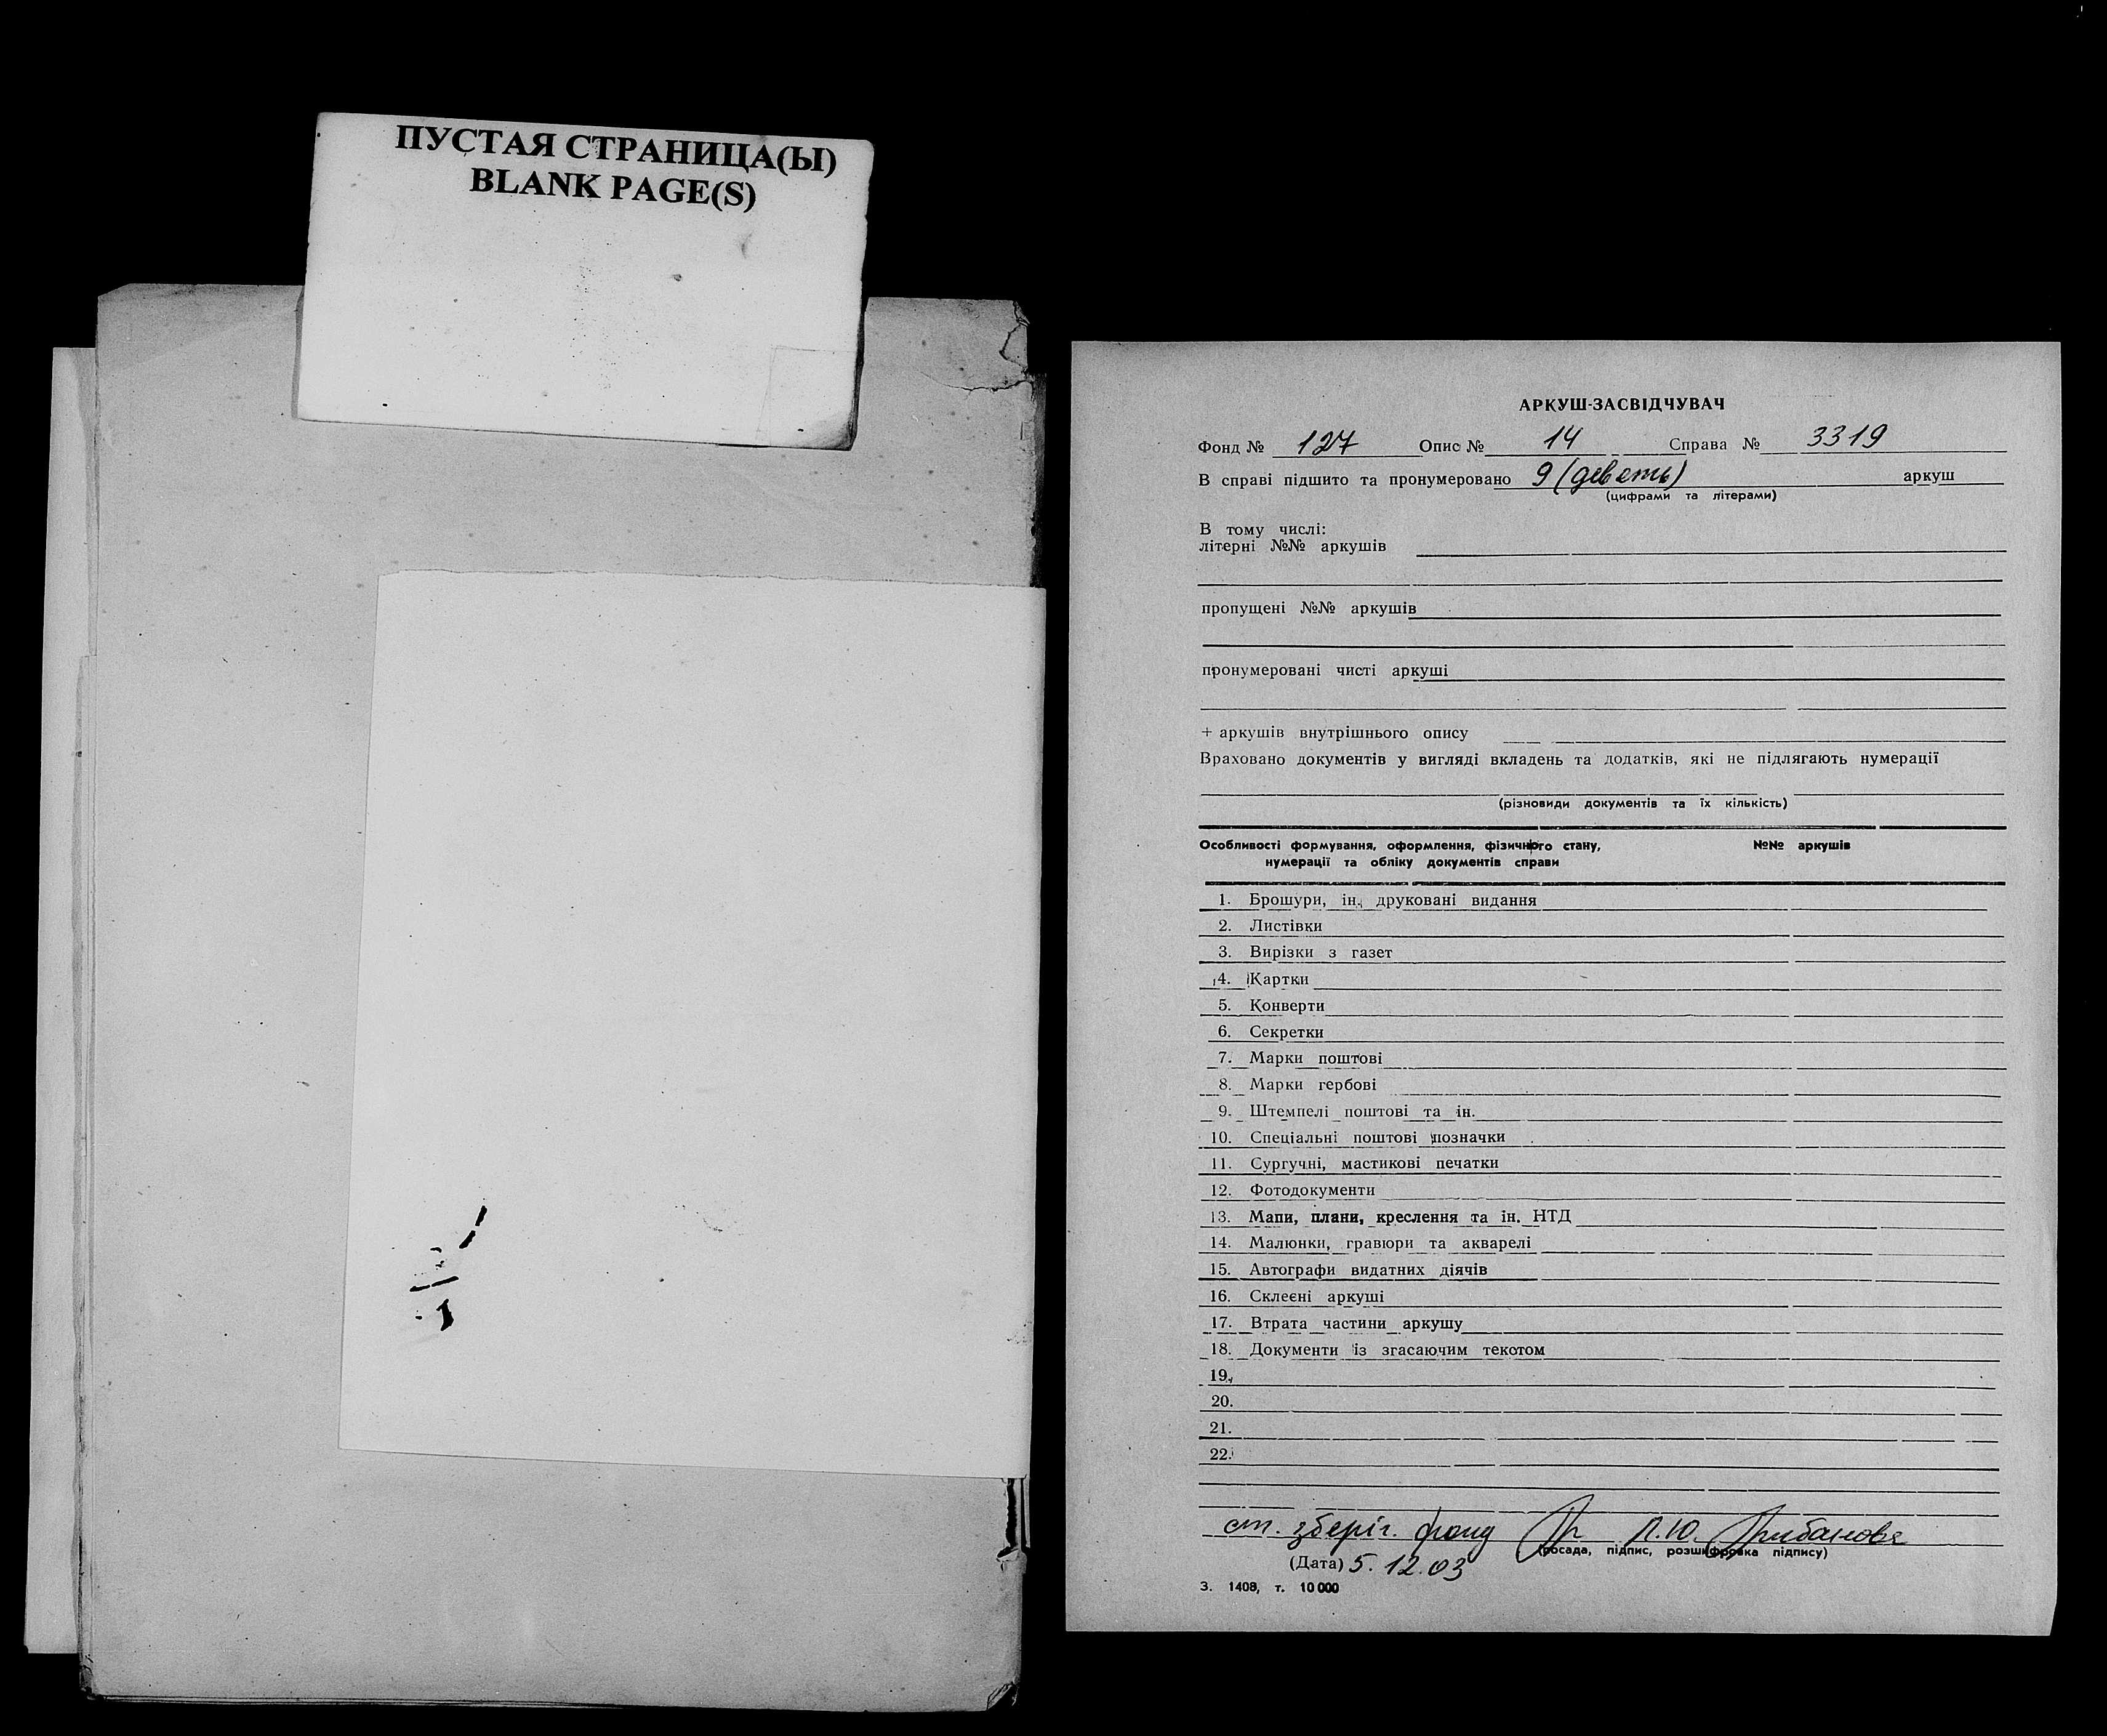 ПУСТАЯ СТРАНИЦА(Ы)
BLANK PAGE(S)
АРКУШ-ЗАСВІДЧУВАЧ
Фонд № 127 Опис № 14 Справа № 3319
В справі підшито та пронумеровано 9 (девять) аркуш
(цифрами та літерами)
В тому числі:
літерні №№ аркушів
пропущені №№ аркушів
пронумеровані чисті аркуші
+ аркушів внутрішнього опису
Враховано документів у вигляді вкладень та додатків, які не підлягають нумерації
(різновиди документів та їх кількість)
Особливості формування, оформлення, фізичного стану, №№ аркушів
нумерації та обліку документів справи
1. Брошури, ін. друковані видання
2. Листівки
3. Вирізки з газет
4. Картки
5. Конверти
6. Секретки
7. Марки поштові
8. Марки гербові
9. Штемпелі поштові та ін.
10. Спеціальні поштові позначки
11. Сургучні, мастикові печатки
12. Фотодокументи
13. Мапи, плани, креслення та ін. НТД
14. Малюнки, гравюри та акварелі
15. Автографи видатних діячів
16. Склеєні аркуші
17. Втрата частини аркушу
18. Документи із згасаючим текстом
19.
20.
21.
22.
ст. зберіг. фонд
(посада, підпис, розшифровка підпису)
(Дата) 5.12.03
З. 1408, т. 10 000